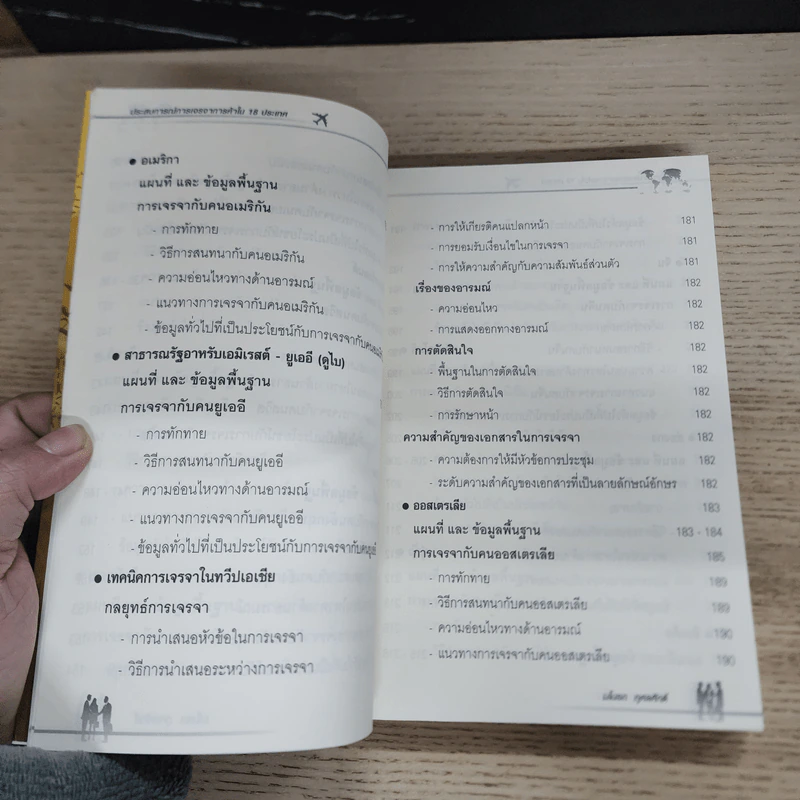 ประสบการณ์การเจรจาการค้าใน 18 ประเทศ
● อเมริกา
แผนที่ และ ข้อมูลพื้นฐาน
การเจรจากับคนอเมริกัน
- การทักทาย
- วิธีการสนทนากับคนอเมริกัน
- ความอ่อนไหวทางด้านอารมณ์
- แนวทางการเจรจากับคนอเมริกัน
- ข้อมูลทั่วไปที่เป็นประโยชน์กับการเจรจากับคน
● สาธารณรัฐอาหรับเอมิเรสต์ - ยูเออี (ดูไบ)
แผนที่ และ ข้อมูลพื้นฐาน
การเจรจากับคนยูเออี
- การทักทาย
- วิธีการสนทนากับคนยูเออี
- ความอ่อนไหวทางด้านอารมณ์
- แนวทางการเจรจากับคนยูเออี
- ข้อมูลทั่วไปที่เป็นประโยชน์กับการเจรจากับคน
● เทคนิคการเจรจาในทวีปเอเชีย
กลยุทธ์การเจรจา
- การนำเสนอหัวข้อในการเจรจา
- วิธีการนำเสนอระหว่างการเจรจา
- การให้เกียรติคนแปลกหน้า 181
- การยอมรับเงื่อนไขในการเจรจา 181
- การให้ความสำคัญกับความสัมพันธ์ส่วนตัว 181
เรื่องของอารมณ์ 182
- ความอ่อนไหว 182
- การแสดงออกทางอารมณ์ 182
การตัดสินใจ 182
- พื้นฐานในการตัดสินใจ 182
- วิธีการตัดสินใจ 182
- การรักษาหน้า 182
ความสำคัญของเอกสารในการเจรจา 182
- ความต้องการให้มีหัวข้อการประชุม 182
- ระดับความสำคัญของเอกสารที่เป็นลายลักษณ์อักษร 182
● ออสเตรเลีย 183
แผนที่ และ ข้อมูลพื้นฐาน 183 - 184
การเจรจากับคนออสเตรเลีย 185
- การทักทาย 189
- วิธีการสนทนากับคนออสเตรเลีย 189
- ความอ่อนไหวทางด้านอารมณ์ 190
- แนวทางการเจรจากับคนออสเตรเลีย 190